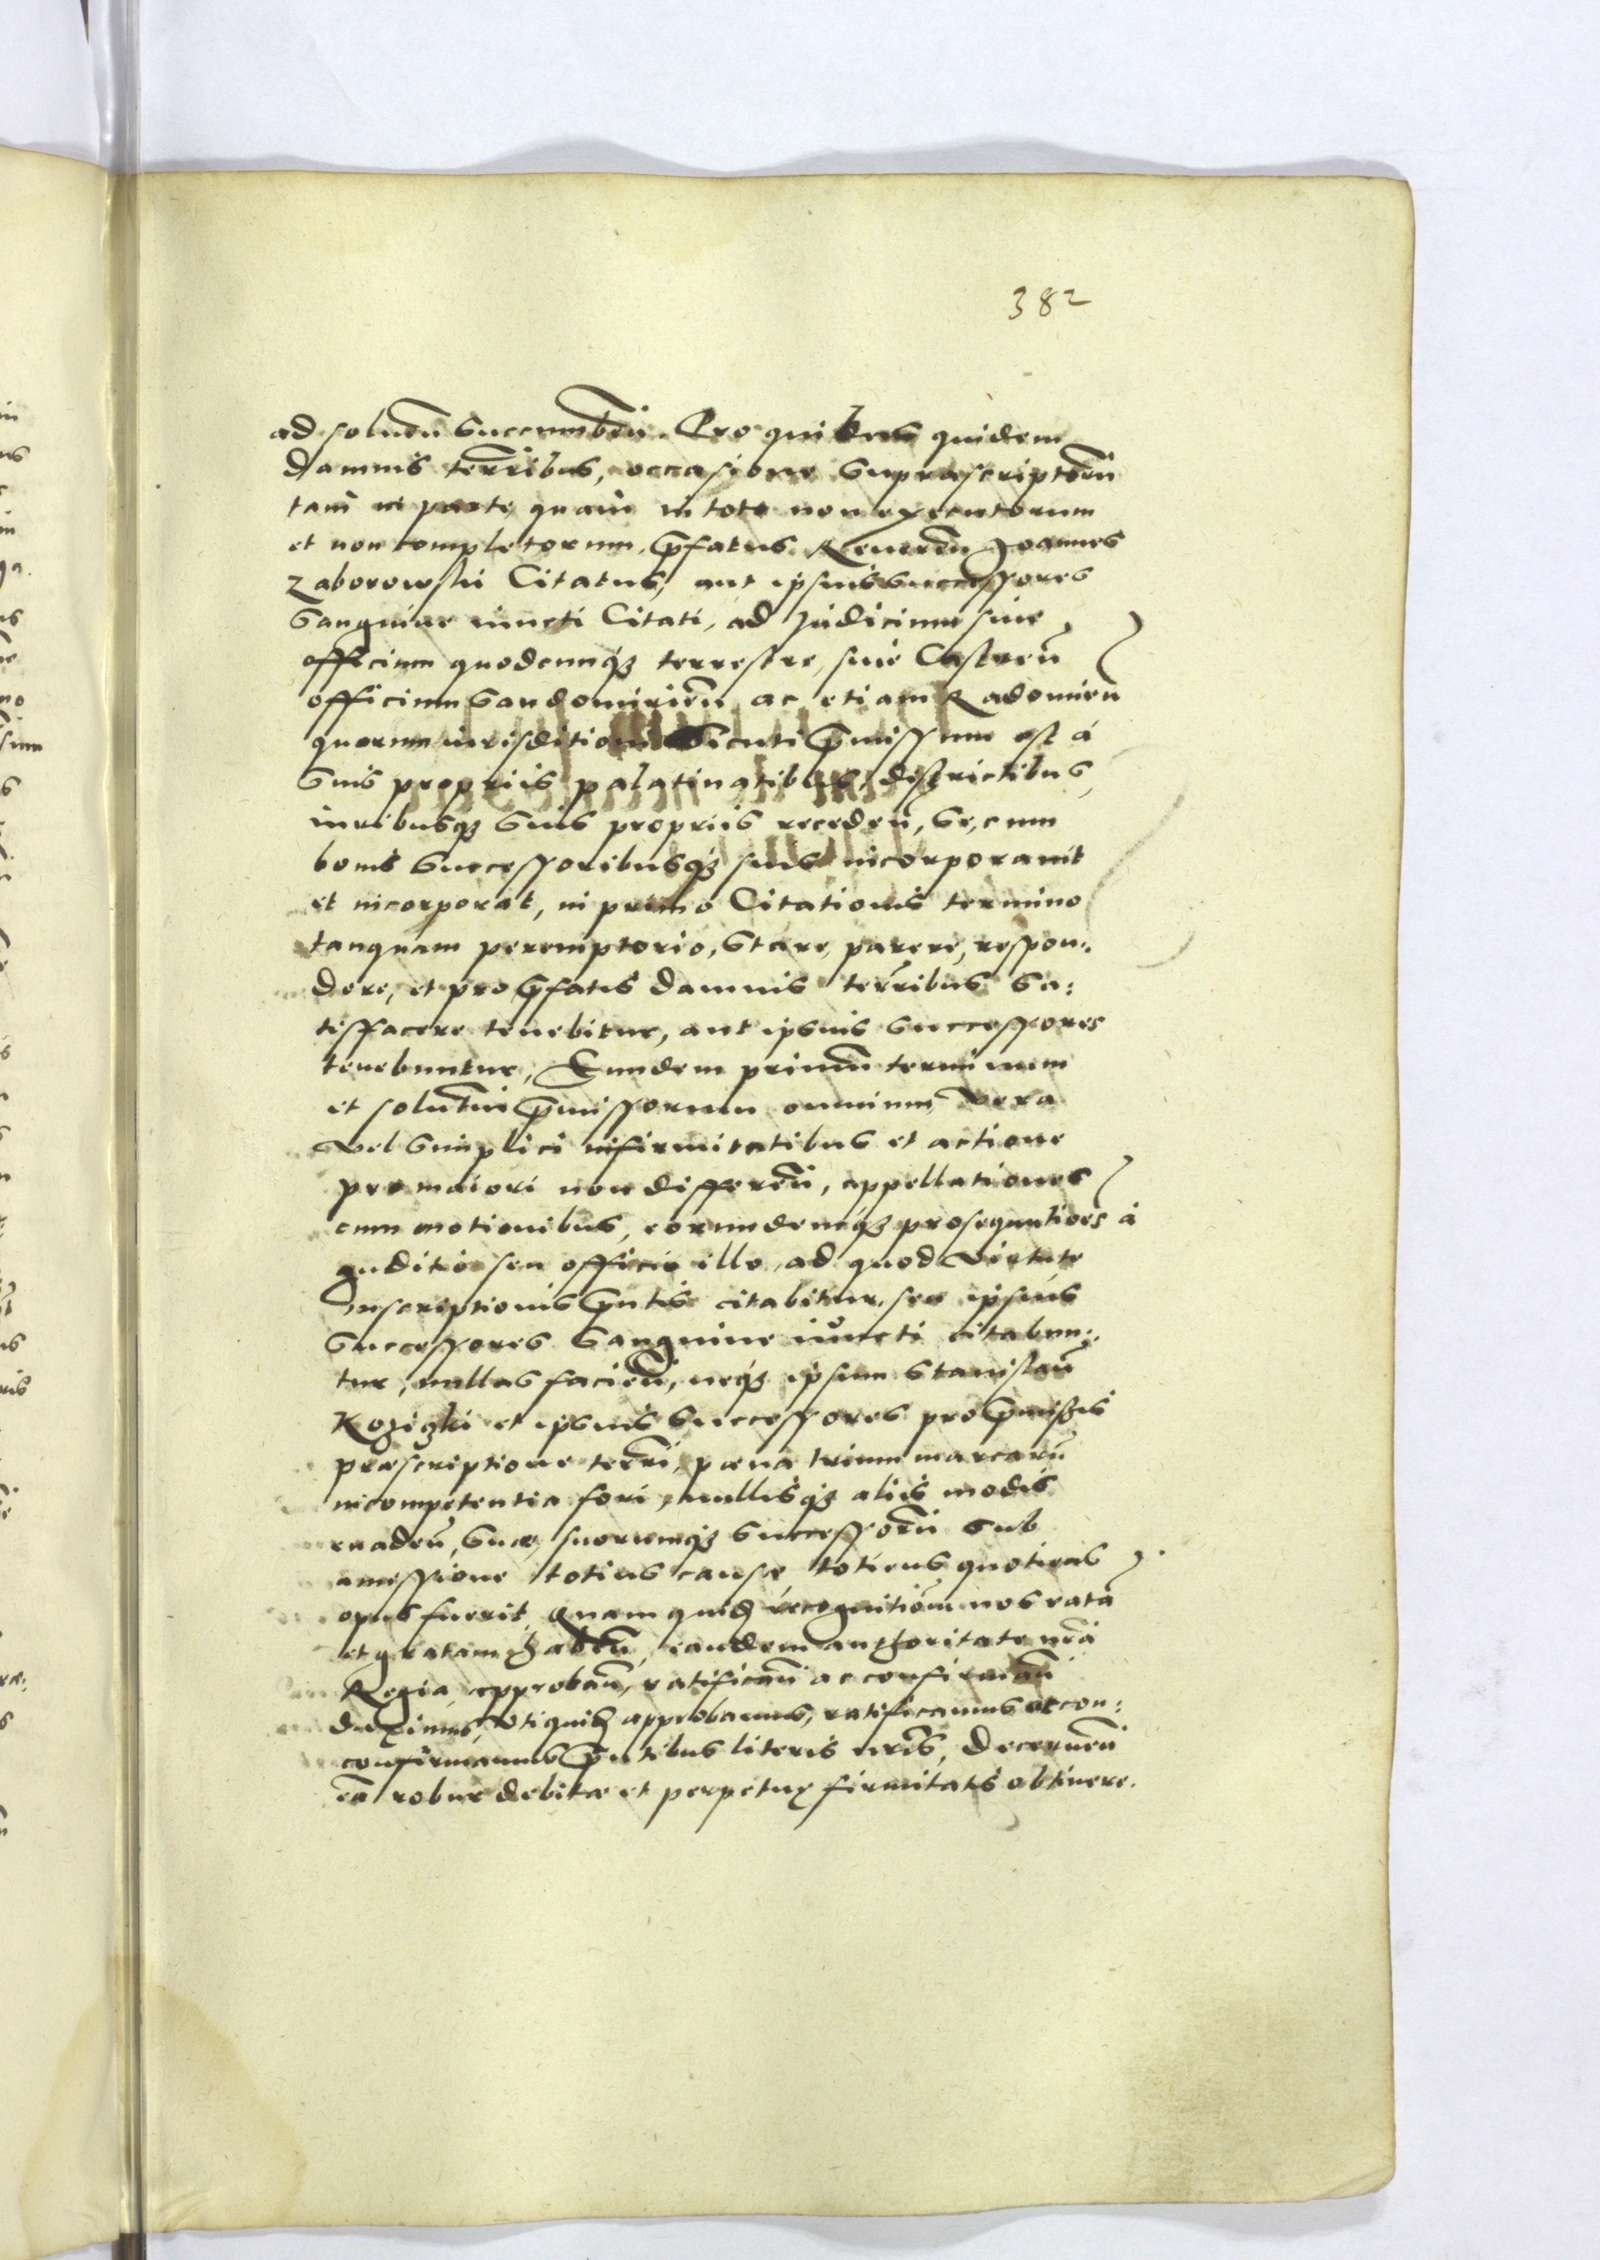 382
ad soluen̄ succumben̄. Pro quibus quidem
damnis terr̄ribus, occasione suprascriptorū
tam in parte quam in toto non executorum
et non completorum, p̄fatus Reueren̄ Joannes
Zaborowski Citatus, aut ipsius successores
sanguine iuncti Citati, ad Judicium siue
officium quodcunq; terrestre, siue Castren̄
officium Sandomirien̄ ac etiam Radomien̄
quorum iurisditioni sicuti p̄missum est á
suis propriis palatinatibus, districtibus,
iuribusq; suis propriis receden̄, se, cum
bonis successoribusq; suis incorporauit
et incorporat, in primo Citationis termino
tanquam peremptorio, stare, parere, respon:
dere, et pro p̄fatis damnis terr̄ribus sa:
tisfacere tenebitur, aut ipsius successores
tenebuntur, Eundem primum terminum
et solutn̄i p̄missorum omnium, vera
vel simplici infirmitatibus et actione
pro maiori non differen̄, appellationes
cum motionibus, eorundemq; prosequutioēs á
Juditio seu officio illo, ad quod virtute
Inscriptionis p̄ntis citabitur, seu ipsius
successores sanguine iuncti citabun:
tur, nullas facien̄, neq; ipsum Stanislaū
Kozigki et ipsius successores pro p̄missis
præscriptione terr̄i, pœna trium marcarū
incompetentia fori, nullisq; aliis modis
euaden̄, suæ, suorumq; successorū sub
amissione totius causæ toties quoties
opus fuerit, Quam quid; recognitionem nos ratā
et gratam haben̄, eandem authoritate nr̄a
Regia approban̄, ratifican̄ ac confirman̄
duximus, vti quid; approbamus, ratificamus ac con:
confirmamus p̄ntibus literis nr̄is, Decernen̄
eā robur debitæ et perpetuę firmitatis obtinere.